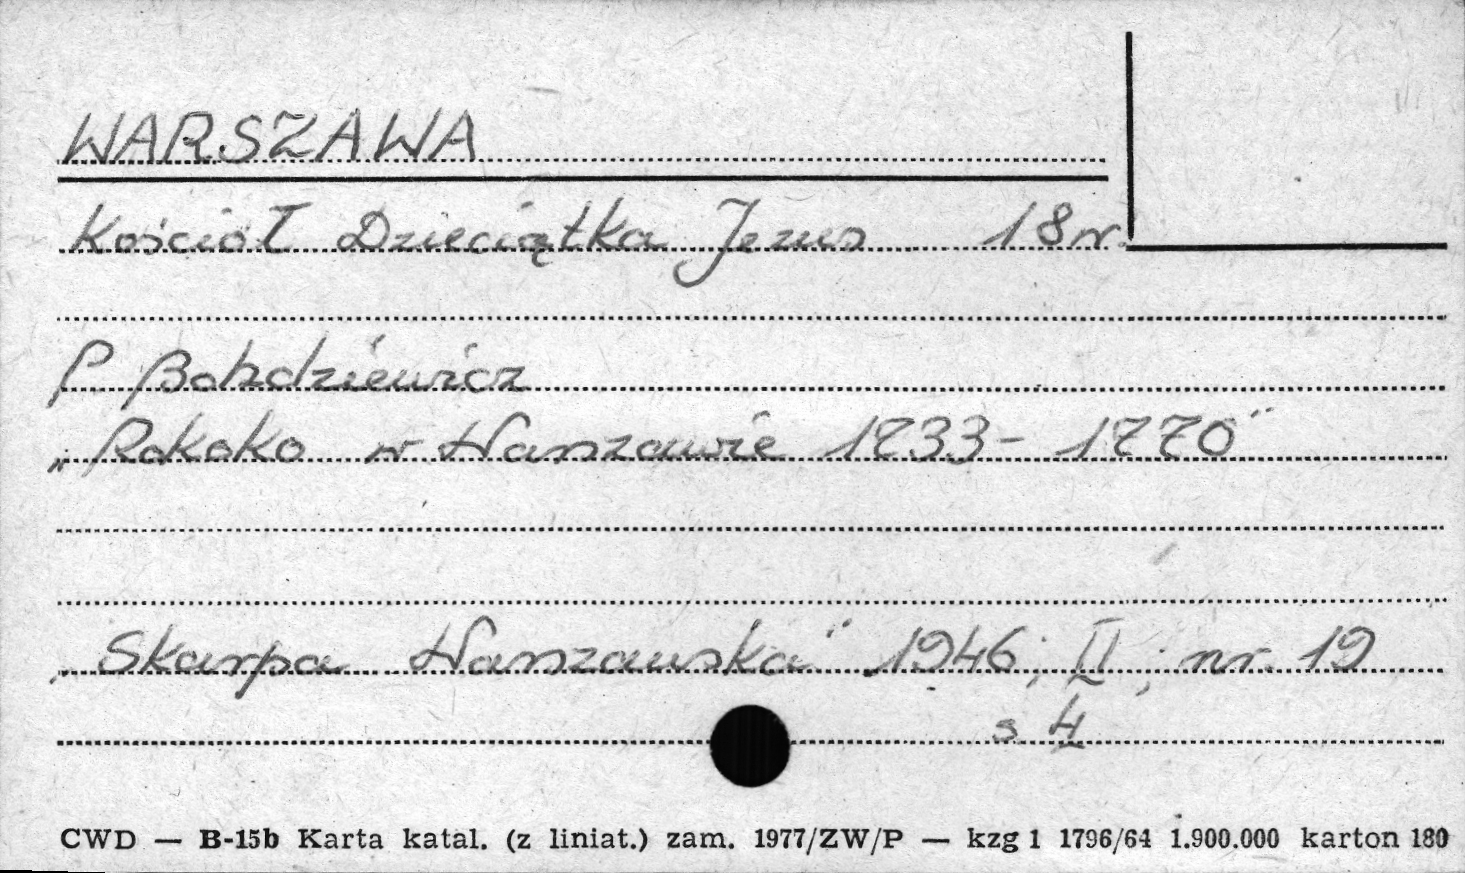 WARSZAWA
Kościół Dzieciątka Jezus 18 w.
P. Bohdziewicz
„Rokoko w Warszawie 1733-1770"
„Skarpa Warszawska" 1946; II; nr. 19
s 4
CWD — B-15b Karta katal. (z liniat.) zam. 1977/ZW/P — kzg 1 1796/64 1.900.000 karton 180